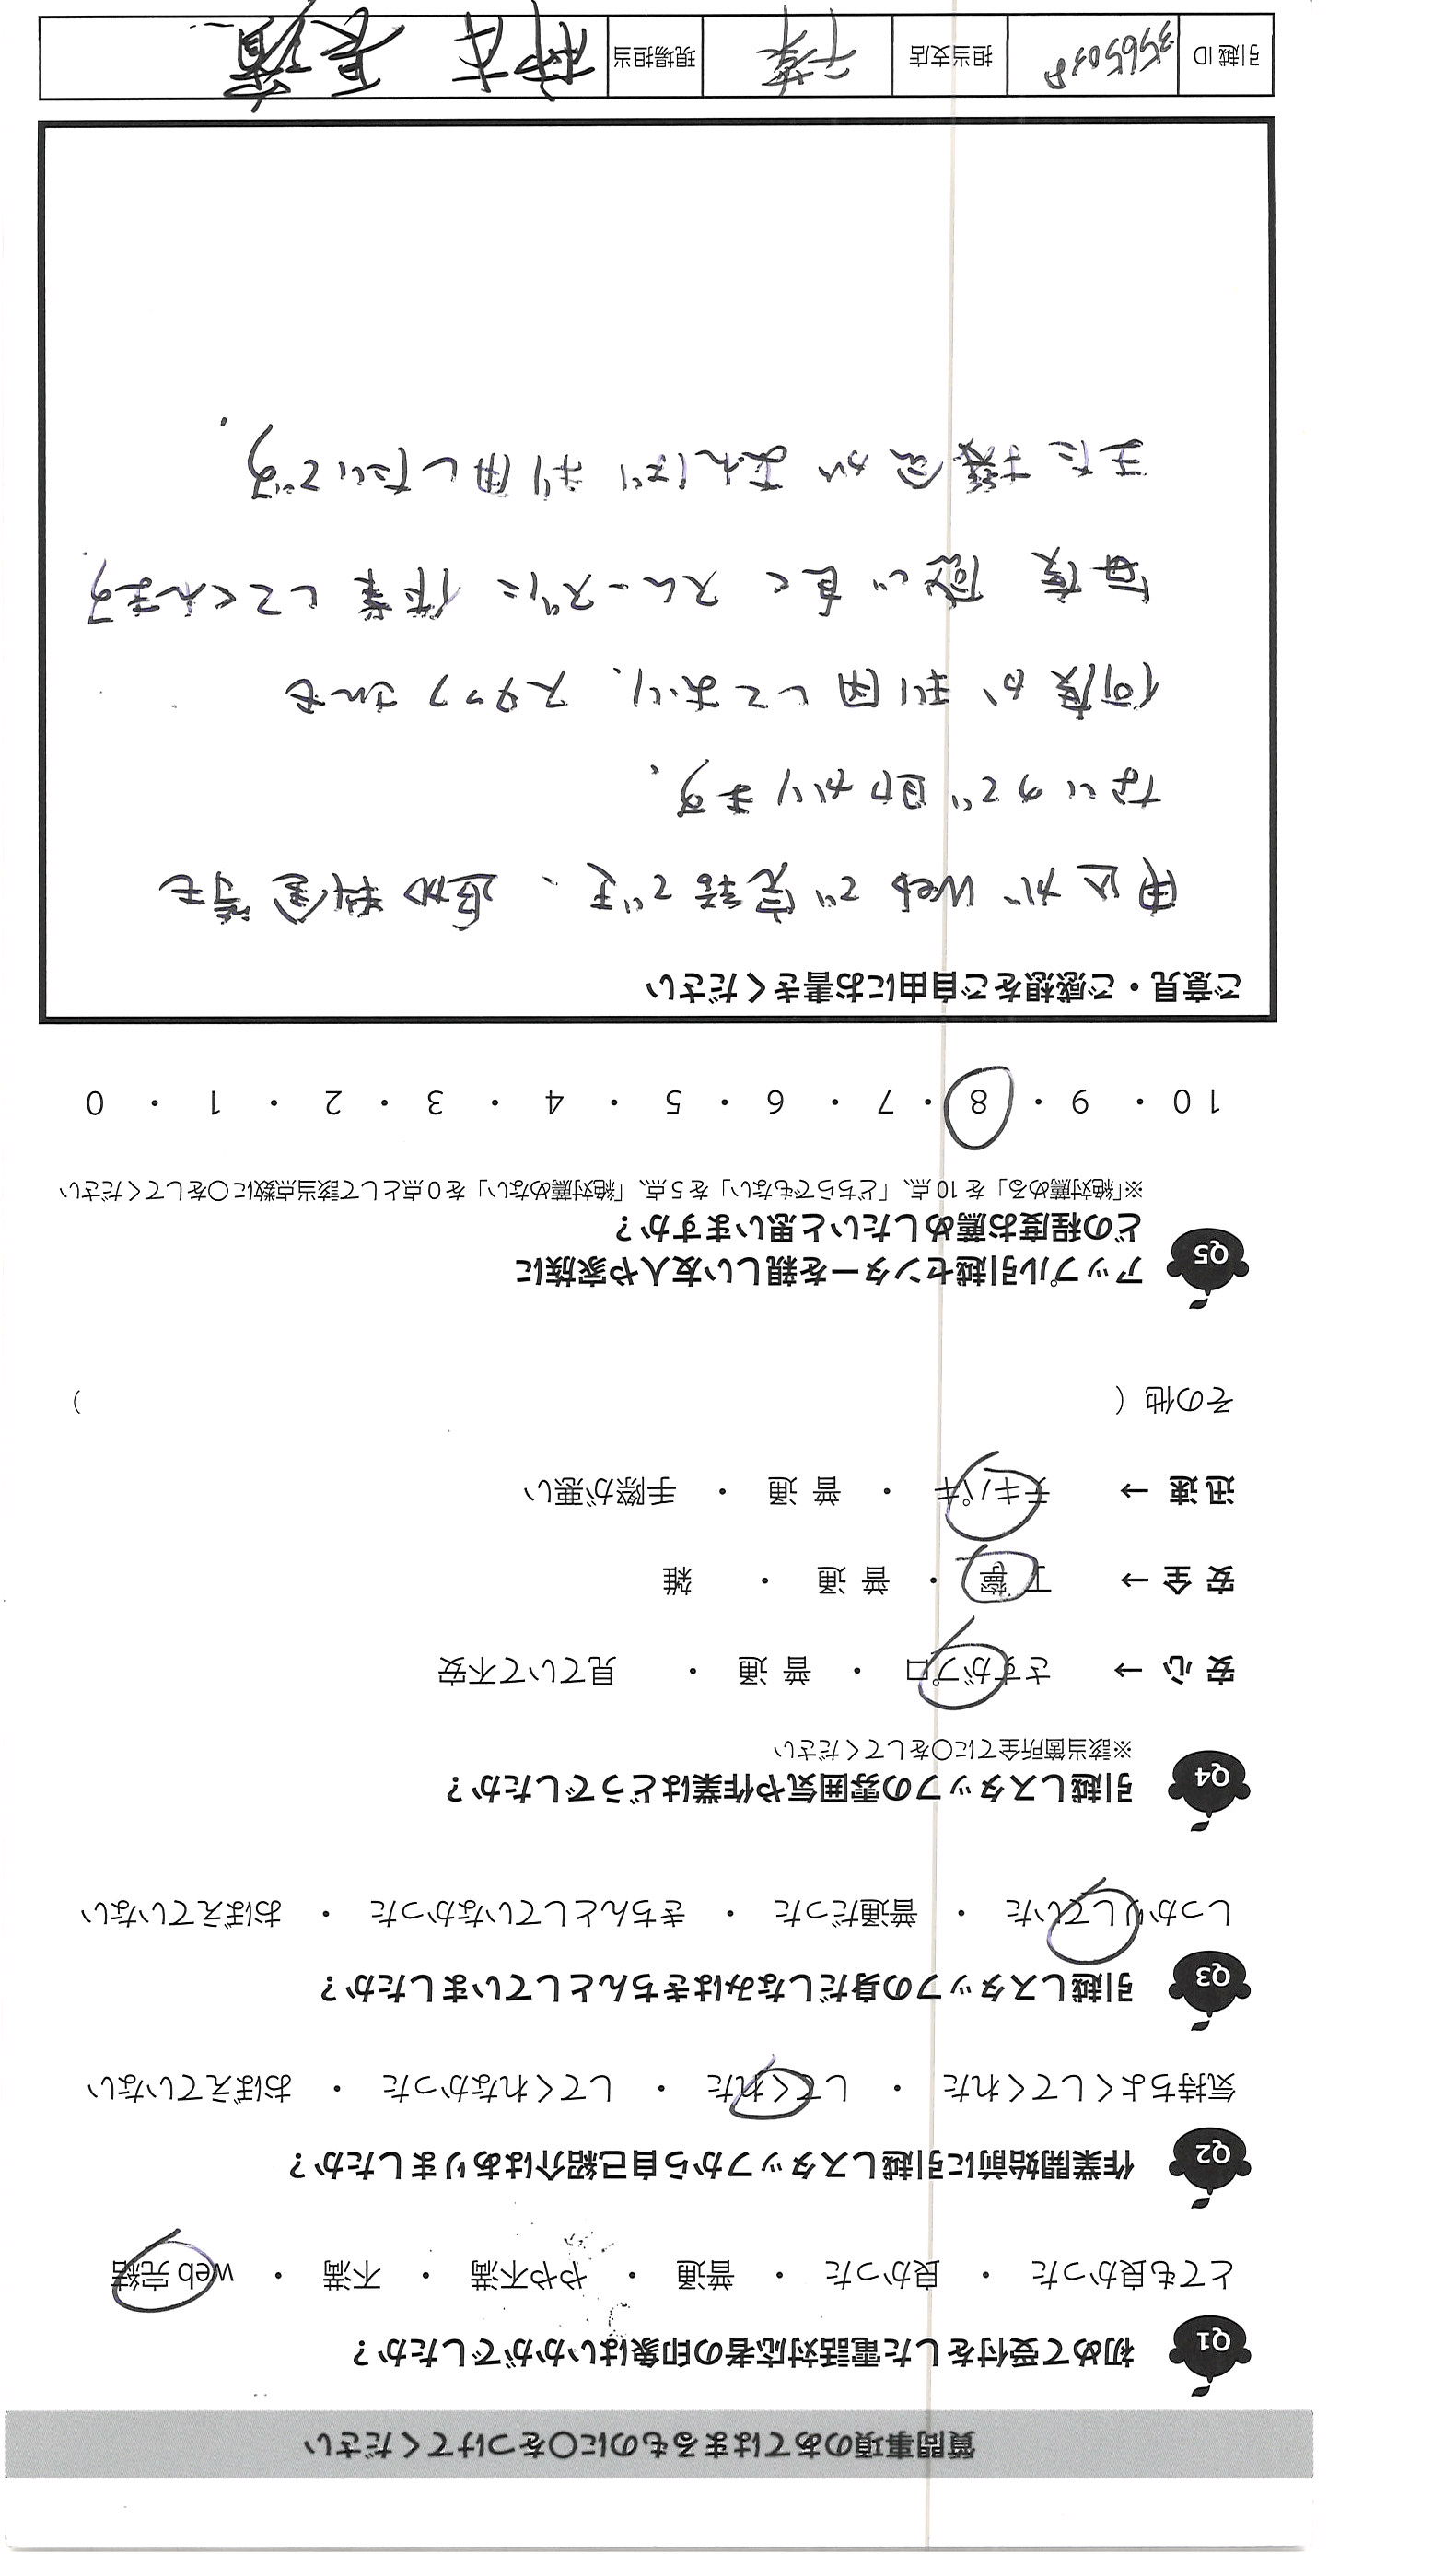 質問事項のあてはまるものに〇をつけてください
Q1 初めて受付をした電話対応者の印象はいかがでしたか？
とても良かった ・ 良かった ・ 普通 ・ やや不満 ・ 不満 ・ web 完結
Q2 作業開始前に引越しスタッフから自己紹介はありましたか？
気持ちよくしてくれた ・ してくれた ・ してくれなかった ・ おぼえていない
Q3 引越しスタッフの身だしなみはきちんとしていましたか？
しっかりしていた ・ 普通だった ・ きちんとしていなかった ・ おぼえていない
Q4 引越しスタッフの雰囲気や作業はどうでしたか？
※該当箇所全てに〇をしてください
安 心 → さすがプロ ・ 普 通 ・ 見ていて不安
安 全 → 丁 寧 ・ 普 通 ・ 雑
迅 速 → テキパキ ・ 普 通 ・ 手際が悪い
その他 ( )
Q5 アップル引越センターを親しい友人や家族に
どの程度お薦めしたいと思いますか？
※「絶対薦める」を 10 点、「どちらでもない」を 5 点、「絶対薦めない」を 0 点として該当点数に〇をしてください
10 ・ 9 ・ 8 ・ 7 ・ 6 ・ 5 ・ 4 ・ 3 ・ 2 ・ 1 ・ 0
ご意見・ご感想をご自由にお書きください
申込がWebで完結でき、追加料金等も
ないので助かります。
何度か利用しており、スタッフさんも
毎度感じ良くスムーズに作業してくれます。
また機会があれば利用したいです。
引越 ID 担当支店 千葉 現場担当